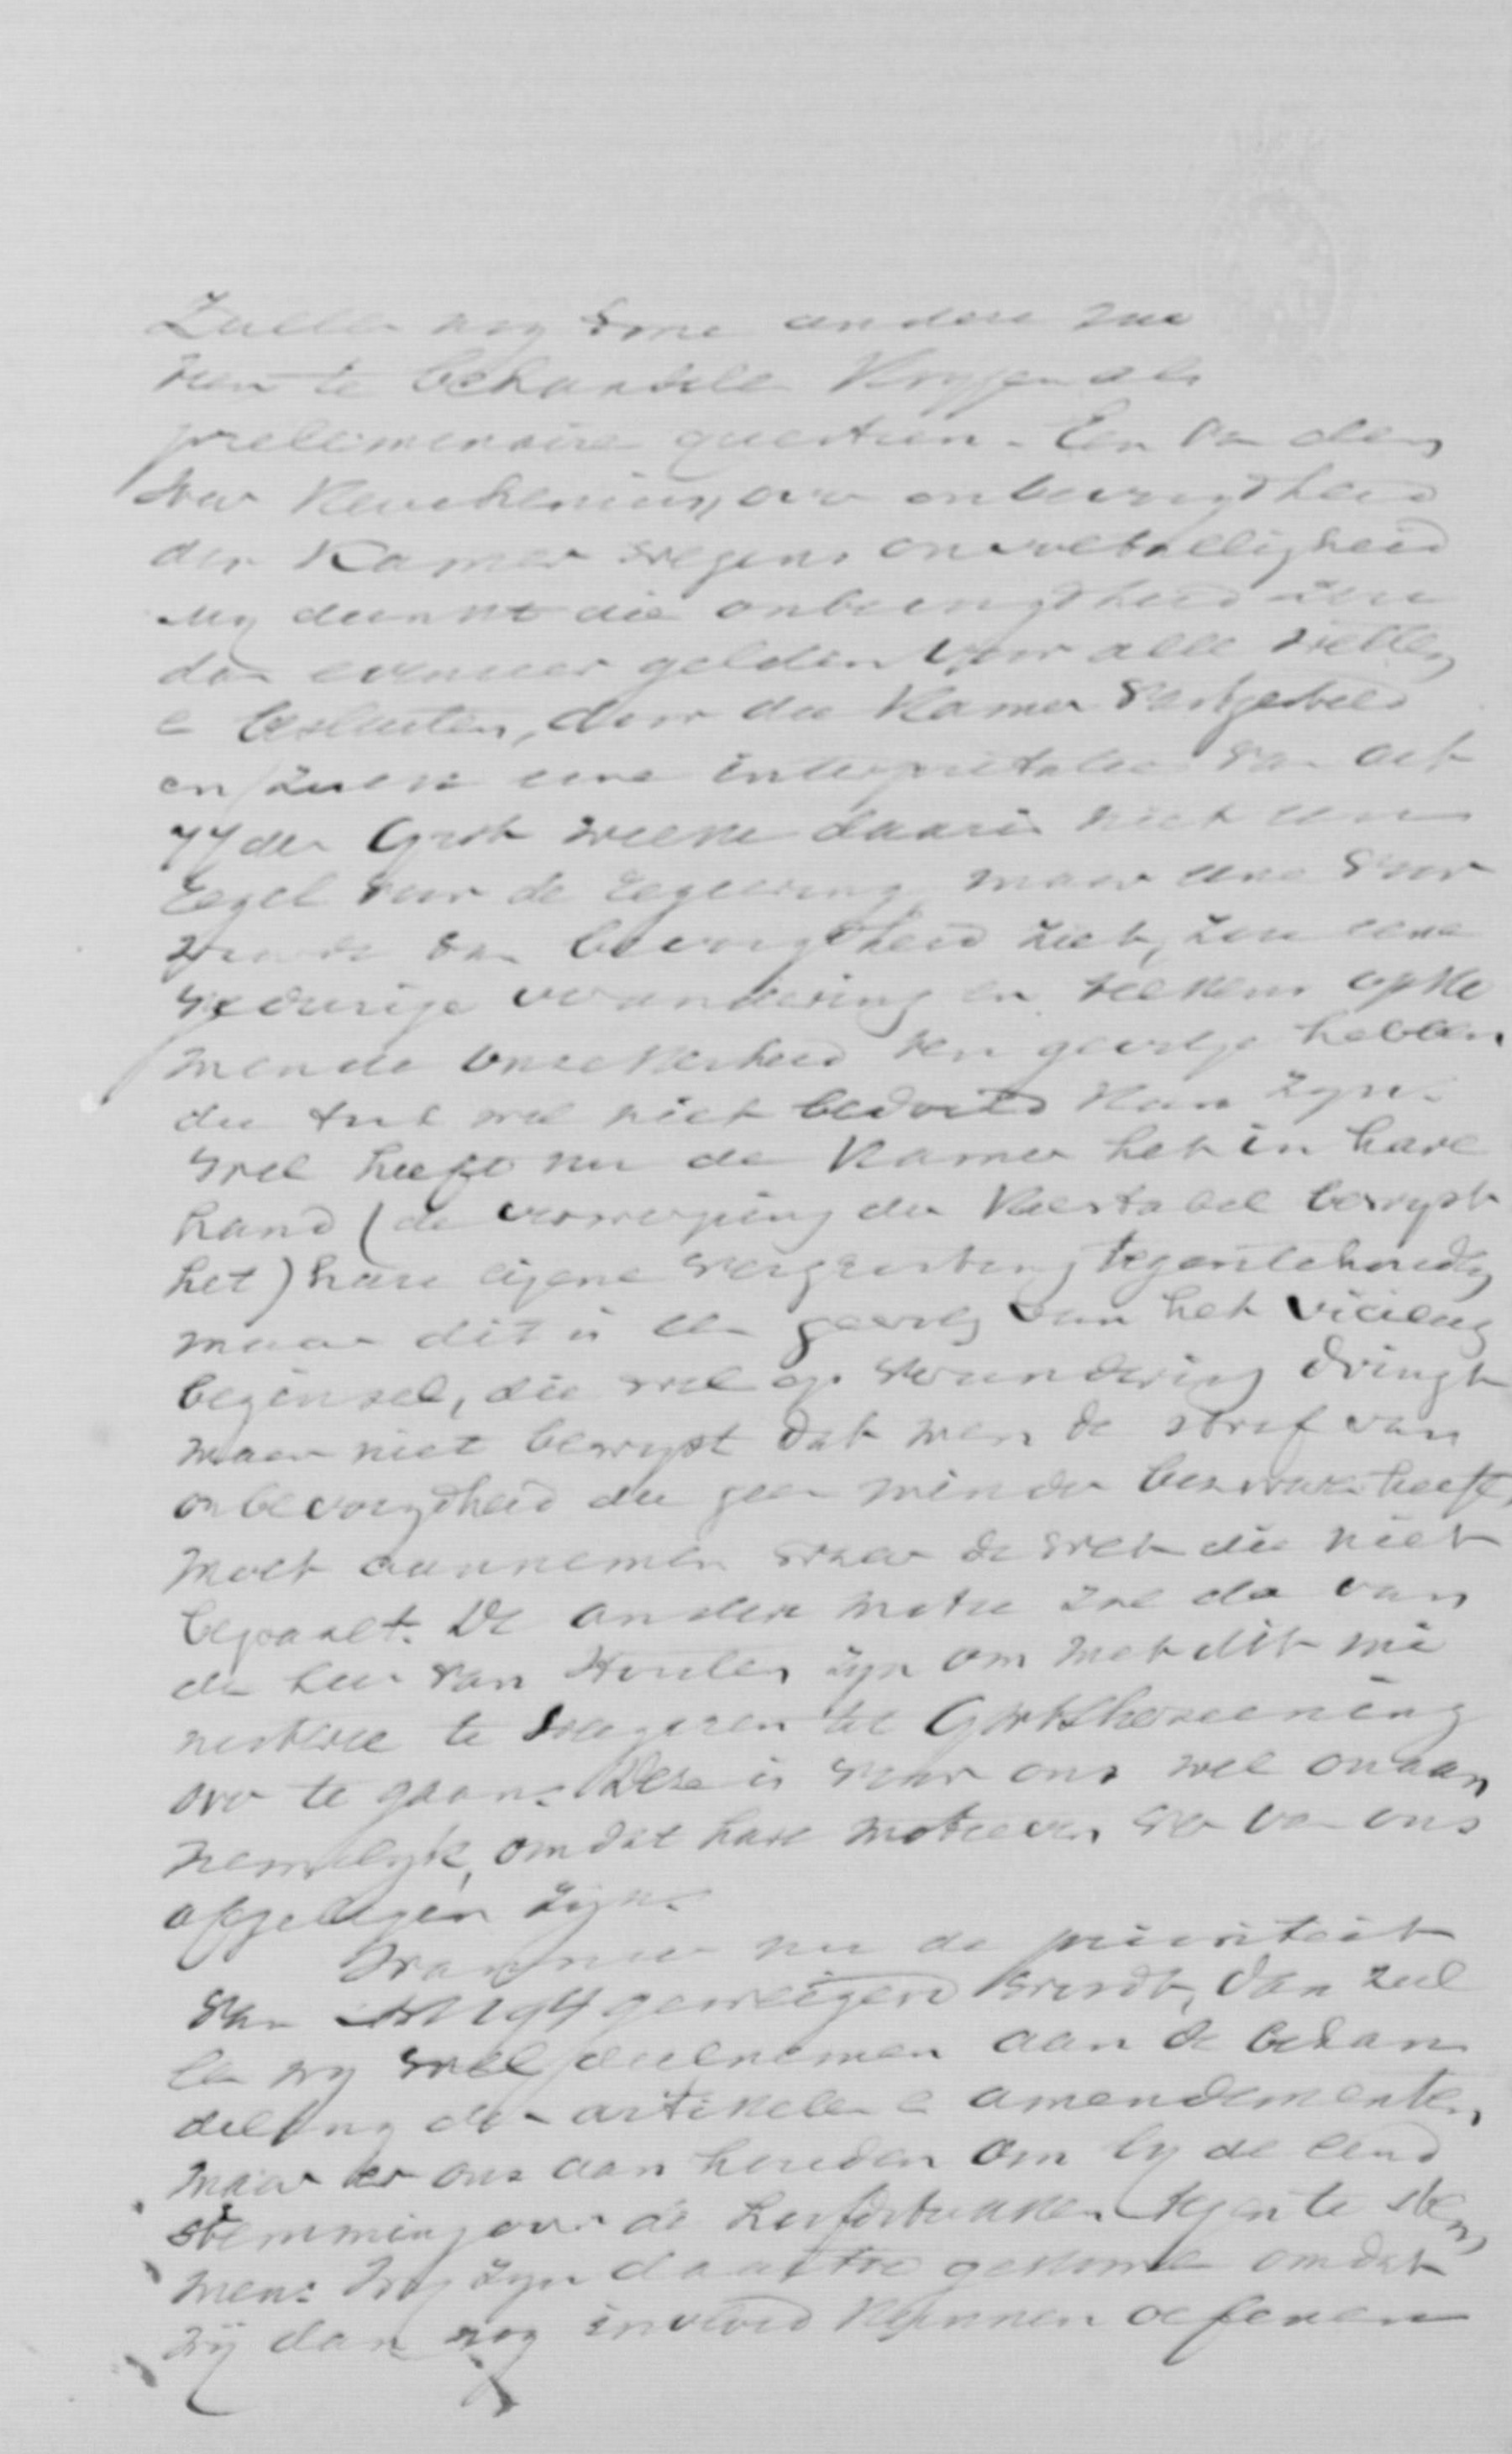 Zullen nog twee andere zaa
ken te behandelen krygen als
preliminaire questien. Een van den
Heer Keuchenius, over onbevoegdheid
der Kamer wegens onvoltalligheid
My dunkt die onbevoegdheid zou
dan evenzeer gelden voor alle wetten
e besluiten, door die Kamer vastgesteld
en zulk eene interpretatie van art
77 der Grwt welke daarin niet een
regel voor de regeering maar eene voor
waarde van bevoegdheid ziet, zou eene
gedurige verandering en telkens opko
mende onzekerheid ten gevolge hebben
die toch wel niet bedoeld kan zyn.
Wel heeft nu de Kamer het in hare
hand (de verwerping der Kiestabel bewyst
het) hare eigene vergrooting tegentehouden
maar dit is een gevolg van het vicieus
beginsel, die wel op verandering dringt
maar niet bewyst dat men de straf van
onbevoegdheid die geen minder bezwaren heeft,
moet aannemen waar de wet die niet
bepaalt. De andere motie zal die van
de heer van Houten zyn om met dit mi
nisterie te weigeren tot Grwtsherziening
over te gaan. Deze is voor ons wel onaan
nemelyk, omdat hare motieven ver van ons
afgelegen zyn.
Wanneer nu de prioriteit
van Art 194 geweigerd wordt, dan zul
len wy wel deelnemen aan de behan
deling der artikelen e amendementen,
maar er ons aan houden om by de eind
stemming over de hoofdstukken tegen te stem
men. Wy zyn daartoe gekomen omdat
wij dan nog invloed kunnen oefenen